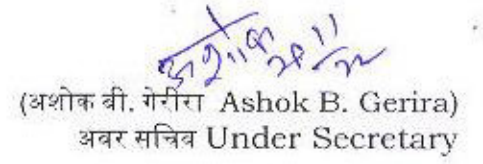 अशोक
(अशोक बी. गेरीरा Ashok B. Gerira)
अवर सचिव Under Secretary